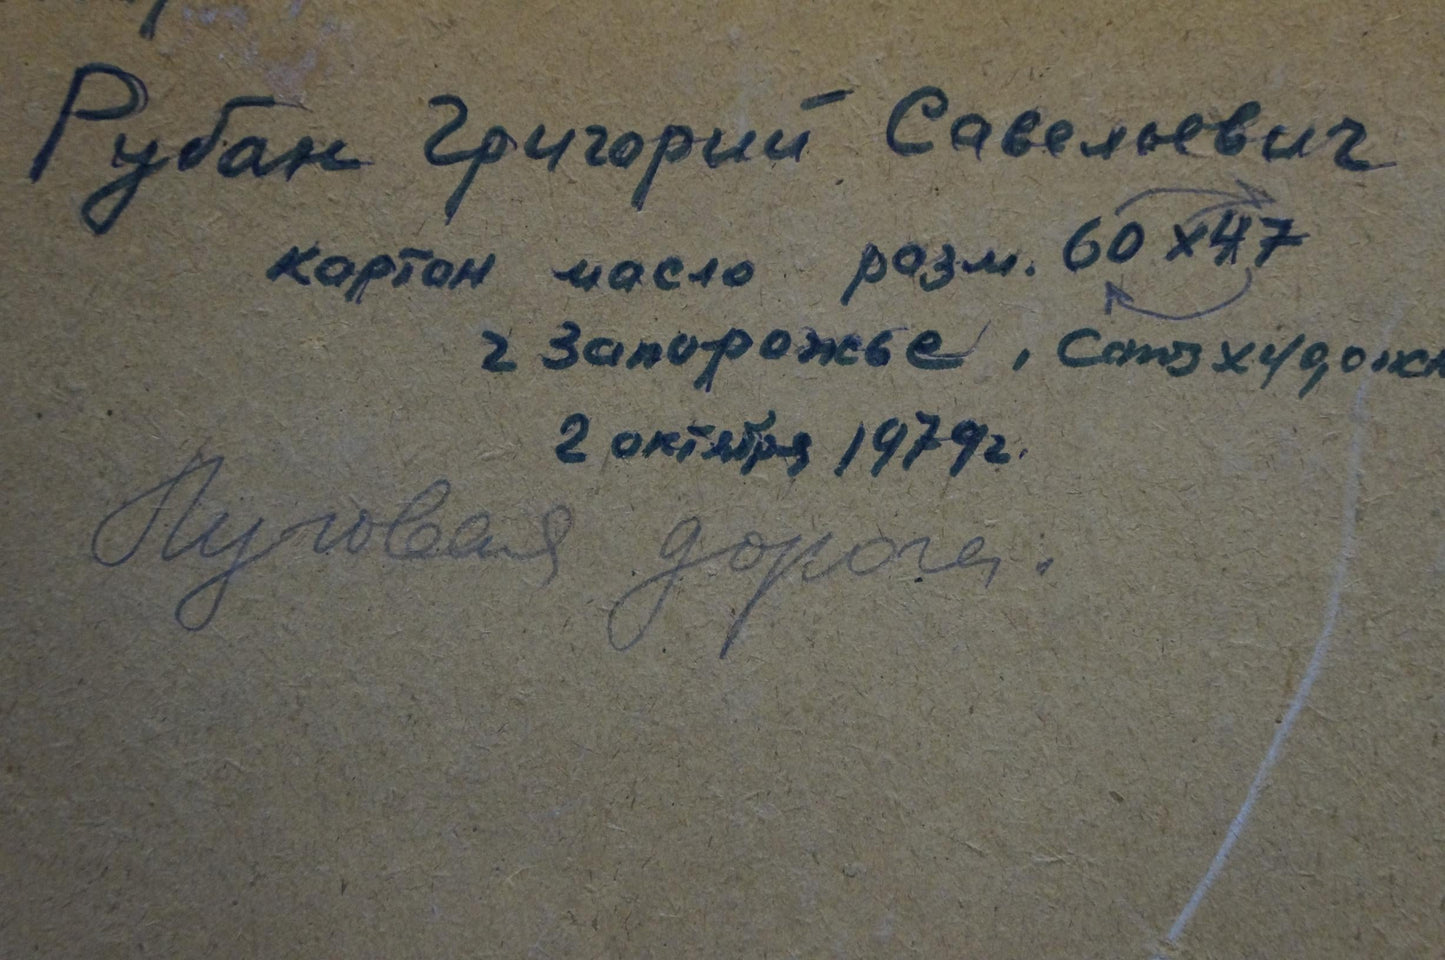 Рубан Григорий Савельевич
картон масло разм. 60х47
г Запорожье, Союз художн
2 октября 1979г.
Луговая дорога.